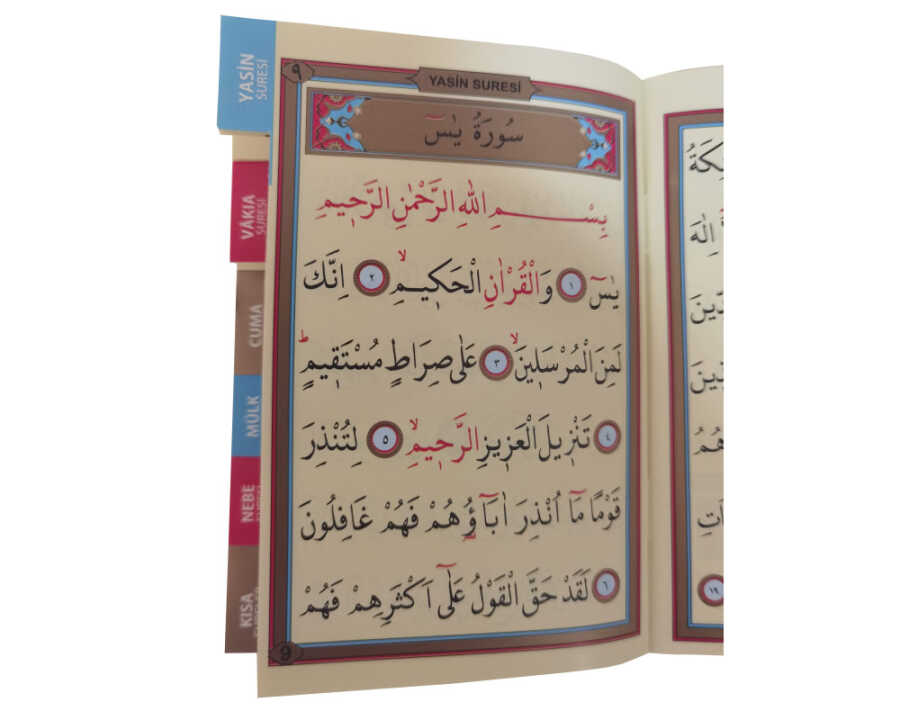 YASİN
SURESİ
VÂKIA
SURESİ
CUMA
MÜLK
NEBE
KISA
٩
YASİN SURESİ
سُورَةُ يٰسٓ
بِسْمِ اللّٰهِ الرَّحْمٰنِ الرَّح۪يمِ
يٰسٓ ﴿١﴾ وَالْقُرْاٰنِ الْحَك۪يمِۙ ﴿٢﴾ اِنَّكَ
لَمِنَ الْمُرْسَل۪ينَۙ ﴿٣﴾ عَلٰى صِرَاطٍ مُسْتَق۪يمٍۜ
﴿٤﴾ تَنْز۪يلَ الْعَز۪يزِ الرَّح۪يمِۙ ﴿٥﴾ لِتُنْذِرَ
قَوْمًا مَٓا اُنْذِرَ اٰبَٓاؤُ۬هُمْ فَهُمْ غَافِلُونَ
﴿٦﴾ لَقَدْ حَقَّ الْقَوْلُ عَلٰٓى اَكْثَرِهِمْ فَهُمْ
9
اِلٰهَ
١٩